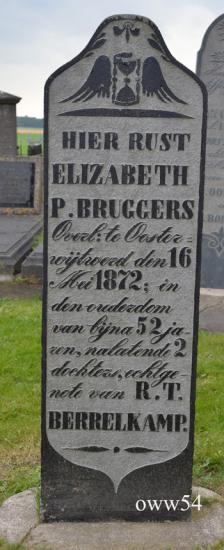 HIER RUST
ELIZABETH
P. BRUGGERS
Overl: te Ooster-
wijtwerd den 16
Mei 1872; in
den ouderdom
van bijna 52 ja-
ren, nalatende 2
dochters, echtge-
note van R. T.
BERRELKAMP.
oww54